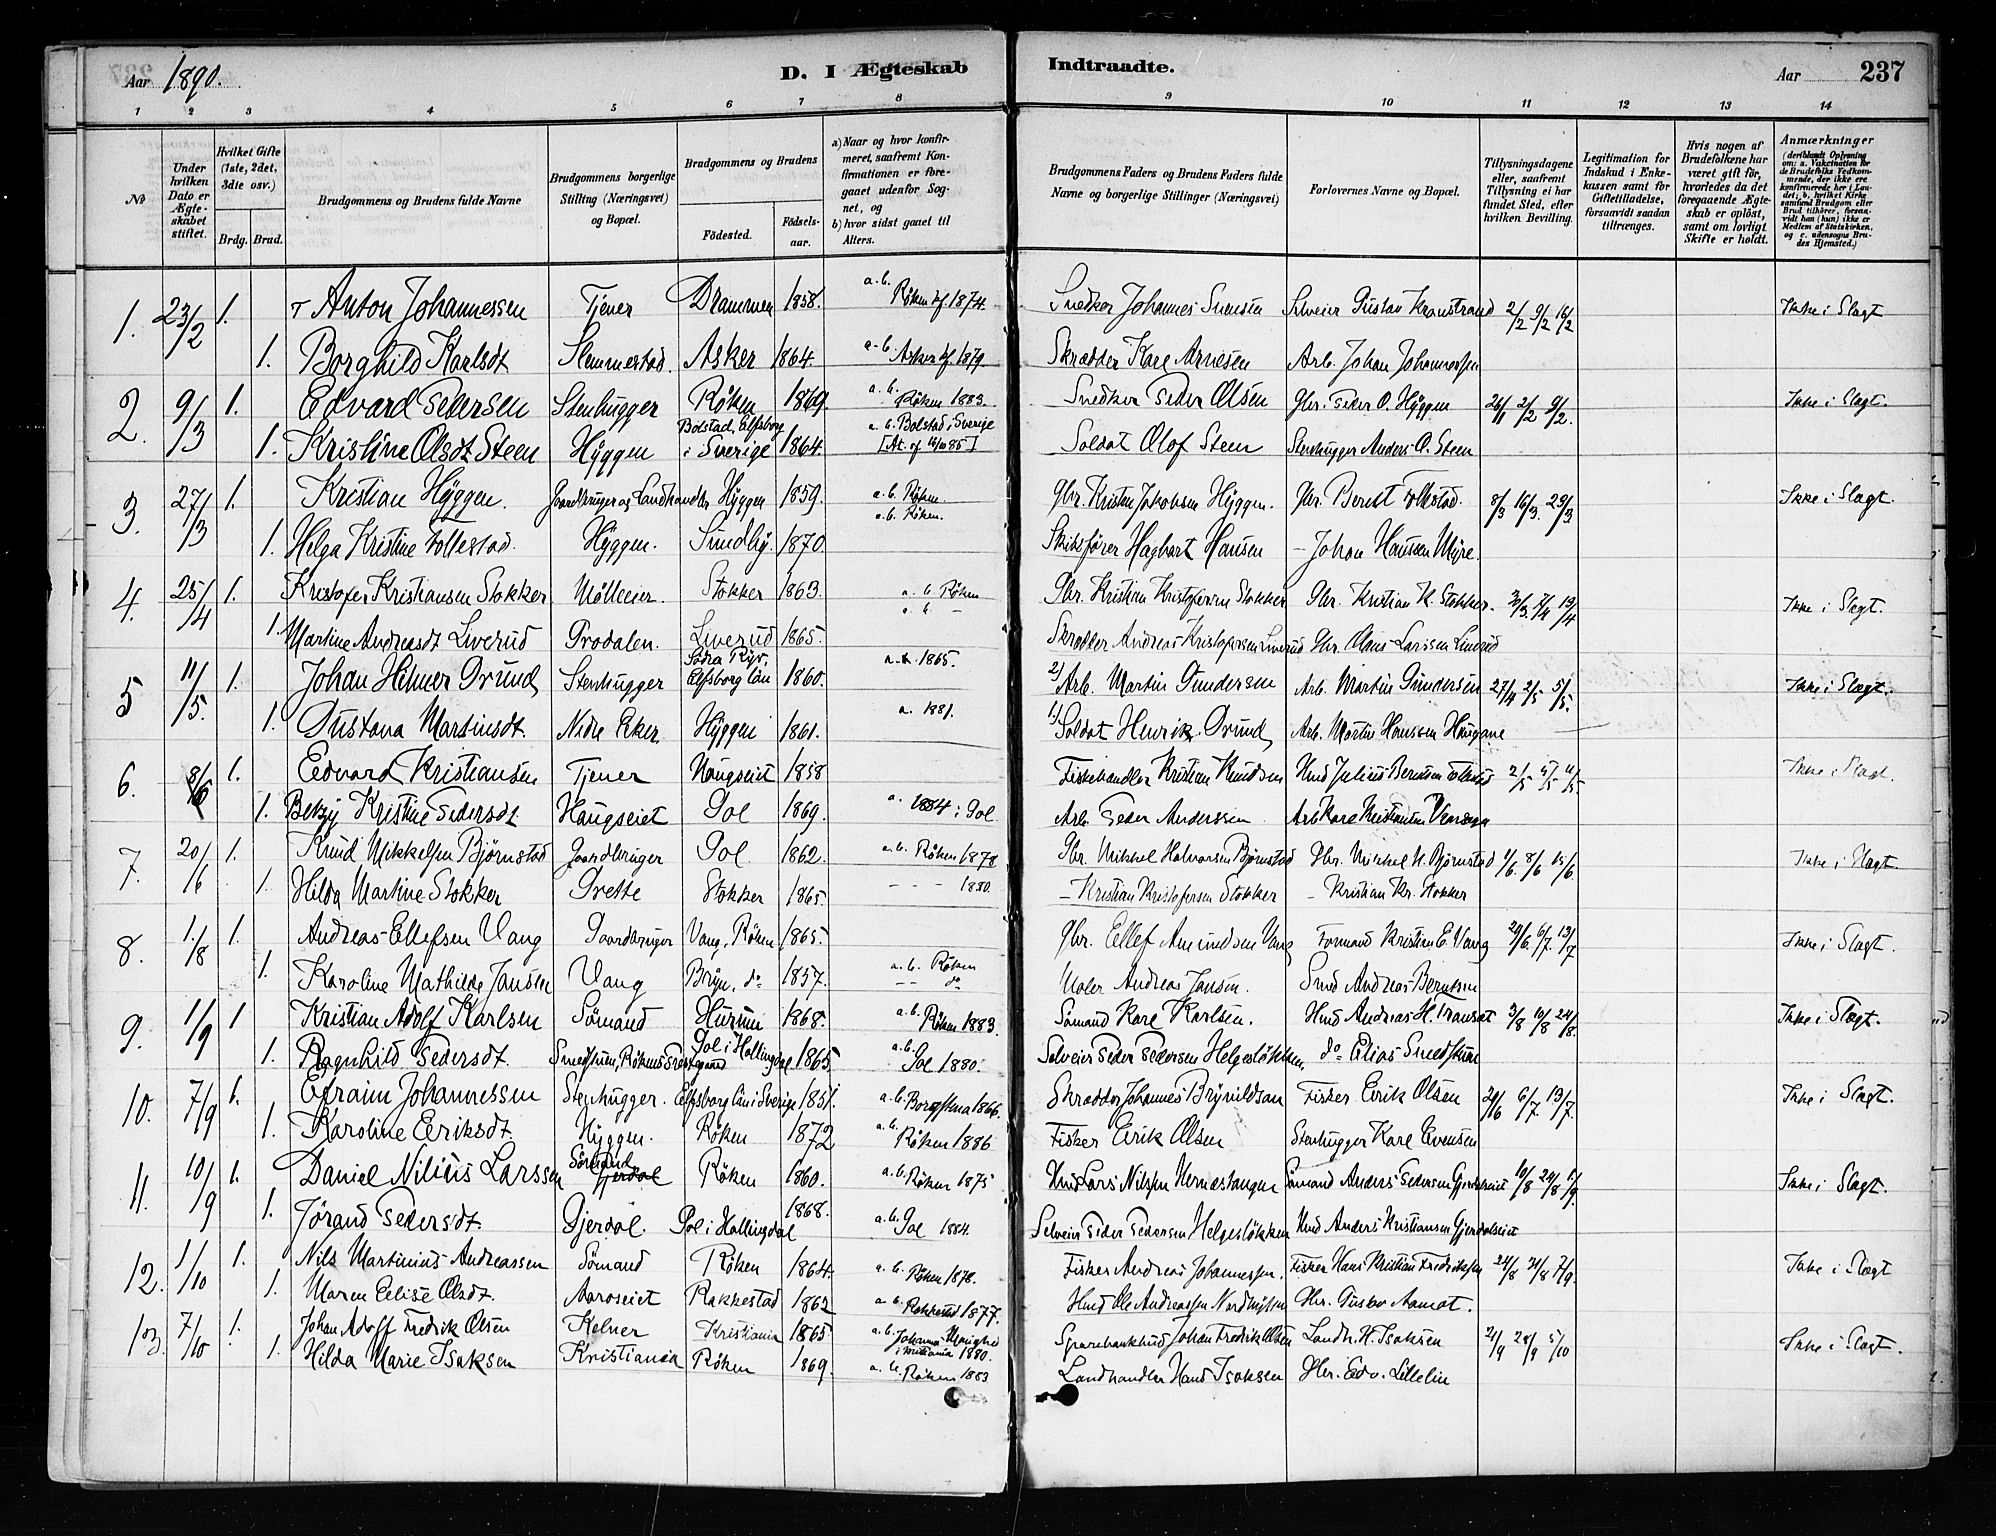 Aar 1890. D. I Ægteskab Indtraadte. Aar 237
1 2 3 4 5 6 7 8 9 10 11 12 13 14
No
Under hvilken Dato er Ægteskabet stiftet.
Hvilket Gifte (1ste, 2det, 3die osv.)
Brdg. Brud.
Brudgommens og Brudens fulde Navne
Brudgommens borgerlige Stilling (Næringsvei) og Bopæl.
Brudgommens og Brudens
Fødested. Fødselsaar.
a) Naar og hvor konfirmeret, saafremt Konfirmationen er foregaaet udenfor Sognet, og
b) hvor sidst gaaet til Alters.
Brudgommens Faders og Brudens Faders fulde Navne og borgerlige Stillinger (Næringsvei)
Forlovernes Navne og Bopæl.
Tillysningsdagene eller, saafremt Tillysning ei har fundet Sted, efter hvilken Bevilling.
Legitimation for Indskud i Enkekassen samt for Giftetilladelse, forsaavidt saadan tiltrænges.
Hvis nogen af Brudefolkene har været gift før, hvorledes da det foregaaende Ægteskab er opløst, samt om lovligt Skifte er holdt.
Anmærkninger
(deriblandt Oplysning om: a. Vakcination for de Brudefolks Vedkommende, der ikke ere konfirmerede her i Landet; b. hvilket Kirkesamfund Brudgom eller Brud tilhører, forsaavidt han (hun) ikke er Medlem af Statskirken, og c. udensogns Brudes Hjemsted.)
1. 23/2 1. Anton Johannessen Tjener Drammen 1858. a. b. Røken kf. 1874. Snedker Johannes Svensen Selveier Gustav Kronstrand 2/2 9/2 16/2 Ikke i Slægt
1. Borghild Karlsdt Slemmestad. Asker 1864. a. b. Asker kf. 1879. Skrædder Karl Arnesen Arb. Johan Johannessen
2. 9/3 1. Edvard Pedersen Stenhugger Røken 1869. a. b. Røken 1883. Snedker Peder Olsen Gbr. Peder O. Hyggen 26/1 2/2 9/2. Ikke i Slægt.
1. Kristine Olsdt Steen Hyggen Bolstad, Elfsborg i Sverige 1864. a. b. Bolstad i Sverige Soldat Olof Steen Stenhugger Anders O. Steen
3. 27/3 1. Kristian Hyggen. Gaardbruger og Landhandler Hyggen 1859. a. b. Røken Gbr. Kristen Jakobsen Hyggen. Gbr. Berent Follestad. 8/3 16/3. 23/3 Ikke i Slægt.
1. Helga Kristine Follestad. Hyggen. Sundby. 1870 a. b. Røken. Skibsfører Hagbart Hansen – Johan Hansen Myre.
4. 25/4 1. Kristofer Kristiansen Stokker. Mølleeier. Stokker 1863. a. b. Røken Gbr. Kristian Kristofersen Stokker Gbr. Kristian K. Stokker. 13/4 Ikke i Slægt.
1. Martine Andreasdt Liverud Prodalen. Liverud 1865. a. b. – Skrædder Andreas Kristofersen Liverud Gbr. Olaus Larssen Liverud
5 11/5. 1. Johan Helmer Grund Stenhugger Södra Ryr. Elfsborg län 1860. 1865. 2) Arb. Martin Gundersen Arb. Martin Gundersen 27/4 2/5 5/5. Ikke i Slægt.
1. Gustava Martinsdt. Nedre Eker. Hyggen 1861. a. 1881. 1) Soldat Henrik Grund Arb. Martin Hanssen Haugane
6. 8/6 1. Edvard Kristiansen Tjener Haugseiet 1858 Fiskehandler Kristian Knudsen Hmd Julius Berntsen Ikke i Slægt.
1. Betzy Kristine Pedersdt. Haugseiet Gol 1869. a. 1884 i Gol Arb. Peder Anderssen Arb Karl Kristiansen
7. 20/6 1. Knud Mikkelsen Bjørnstad Gaardbruger Gol 1862. a. b. Røken 1878 Gbr. Mikkel Halvorsen Bjørnstad Gbr. Mikkel H. Bjørnstad 1/6. 8/6 15/6. Ikke i Slægt.
1. Hilda Martine Stokker Grette Stokker 1865. – – – 1880. – Kristian Kristofersen Stokker – Kristian Kr. Stokker
8. 1./8 1. Andreas Ellefsen Vang Gaardbruger Vang, Røken 1865. a. b. Røken Gbr. Ellef Amundsen Vang Formand Kristian E. Vang 29/6. 6/7. 13/7 Ikke i Slægt.
1. Karoline Mathilde Jansen Vang Bryn, do 1857. – – do Maler Andreas Jansen. Smed Andreas Berntsen
9. 1/9 1 Kristian Adolf Karlsen Sømand Hurum 1868. a. b. Røken 1883. Sømand Karl Karlsen. Hmd Andreas H. 3/8 10/8 24/8. Ikke i Slægt.
1. Ragnhild Pedersdt. Smedstuen, Røkens Prestegaard Gol i Hallingdal 1865. a. b. Gol 1880. Selveier Peder Pedersen Helgesløkken. do Elias Smedstuen
10. 7/9 1. Efraim Johannessen Stenhugger. Elfsborg län i Sverige 1851. a. b. 1866. Skrædder Johannes Brynildsen Fisker Eerik Olsen 29/6 6/7 13/7. Ikke i Slægt.
1. Karoline Eeriksdt. Hyggen. Røken 1872 a. b. Røken 1886 Fisker Eerik Olsen Stenhugger Karl Evensen
11. 10/9 1. Daniel Nilius Larssen Sømand Røken 1860. a. b. Røken 1875 Hmd Lars Nilssen Hernestangen Sømand Anders Pedersen 10/8 24/8 Ikke i Slægt.
1. Jørand Pedersdt. Gjerdal. Gol i Hallingdal 1868. a. b. Gol 1884. Selveier Peder Pedersen Helgesløkken Hmd Anders Kristiansen Gjerdalseiet
12. 1/10 1. Nils Martinius Andreassen Sømand Røken 1864. a. b. Røken 1878. Fisker Andreas Johannessen. Fisker Hans Kristian Fredriksen 7/9. Ikke i Slægt
1. Maren Elise Olsdt. Aaroseiet Rakkestad 1862 a. b. Rakkestad 1877. Hmd Ole Andreassen Gbr. Gustav Aamot.
13. 7/10 1. Johan Adolf Fredrik Olsen Kelner Kristiania 1865 a. b. Johannes Menighed i Kristiania 1880. Sparebankbud Johan Fredrik Olsen Landh. H. Isaksen 21/9 28/9 5/10 Ikke i Slægt.
1. Hilda Marie Isaksen Kristiania Røken 1869. a. b. Røken 1883 Landhandler Hans Isaksen Gbr. Edv. Lillelin